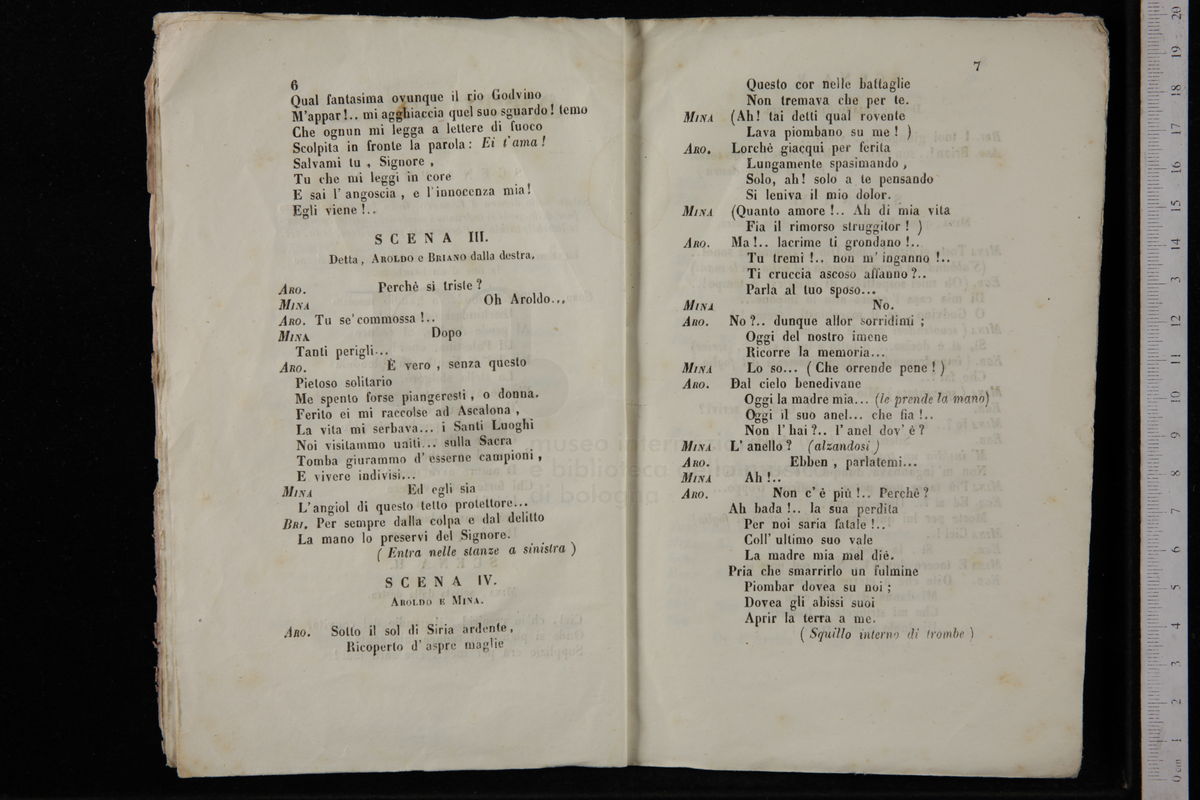 6
Qual fantasima ovunque il rio Godvino
M'appar!.. mi agghiaccia quel suo sguardo! temo
Che ognun mi legga a lettere di fuoco
Scolpita in fronte la parola: Ei t'ama!
Salvami tu, Signore,
Tu che mi leggi in core
E sai l'angoscia, e l'innocenza mia!
Egli viene!..
SCENA III.
Detta, AROLDO e BRIANO dalla destra.
ARO. Perchè si triste?
MINA Oh Aroldo...
ARO. Tu se' commossa!..
MINA Dopo
Tanti perigli...
ARO. È vero, senza questo
Pietoso solitario
Me spento forse piangeresti, o donna.
Ferito ei mi raccolse ad Ascalona,
La vita mi serbava... i Santi Luoghi
Noi visitammo uniti... sulla Sacra
Tomba giurammo d'esserne campioni,
E vivere indivisi...
MINA Ed egli sia
L'angiol di questo tetto protettore...
BRI. Per sempre dalla colpa e dal delitto
La mano lo preservi del Signore.
(Entra nelle stanze a sinistra)
SCENA IV.
AROLDO E MINA.
ARO. Sotto il sol di Siria ardente,
Ricoperto d'aspre maglie
7
Questo cor nelle battaglie
Non tremava che per te.
MINA (Ah! tai detti qual rovente
Lava piombano su me!)
ARO. Lorchè giacqui per ferita
Lungamente spasimando,
Solo, ah! solo a te pensando
Si leniva il mio dolor.
MINA (Quanto amore!.. Ah di mia vita
Fia il rimorso struggitor!)
ARO. Ma!.. lacrime ti grondano!..
Tu tremi!.. non m'inganno!..
Ti cruccia ascoso affanno?..
Parla al tuo sposo...
MINA No.
ARO. No?.. dunque allor sorridimi;
Oggi del nostro imene
Ricorre la memoria...
MINA Lo so... (Che orrende pene!)
ARO. Dal cielo benedivane
Oggi la madre mia... (le prende la mano)
Oggi il suo anel... che fia!..
Non l'hai?.. l'anel dov'è?
MINA L'anello? (alzandosi)
ARO. Ebben, parlatemi...
MINA Ah!..
ARO. Non c'è più!.. Perchè?
Ah bada!.. la sua perdita
Per noi saria fatale!..
Coll'ultimo suo vale
La madre mia mel diè.
Pria che smarrirlo un fulmine
Piombar dovea su noi;
Dovea gli abissi suoi
Aprir la terra a me.
(Squillo interno di trombe)